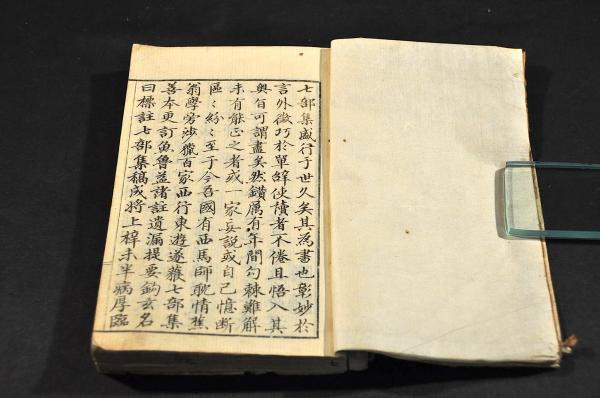 七部集盛行于世久矣其為書也彰妙於
言外微巧於單辭使讀者不倦且悟入其
奥旨可謂盡矣然鑚厲有年間句棘難解
未有能正之者或一家說或自己憶断
區〻紛〻至于今吾國有西馬師耽情蕉
翁學旁渉獵百家西行東遊遂蒐七部集
善本更訂魚魯益諸註遺漏提要鈎玄名
曰標註七部集稿成將上梓未半病厚臨